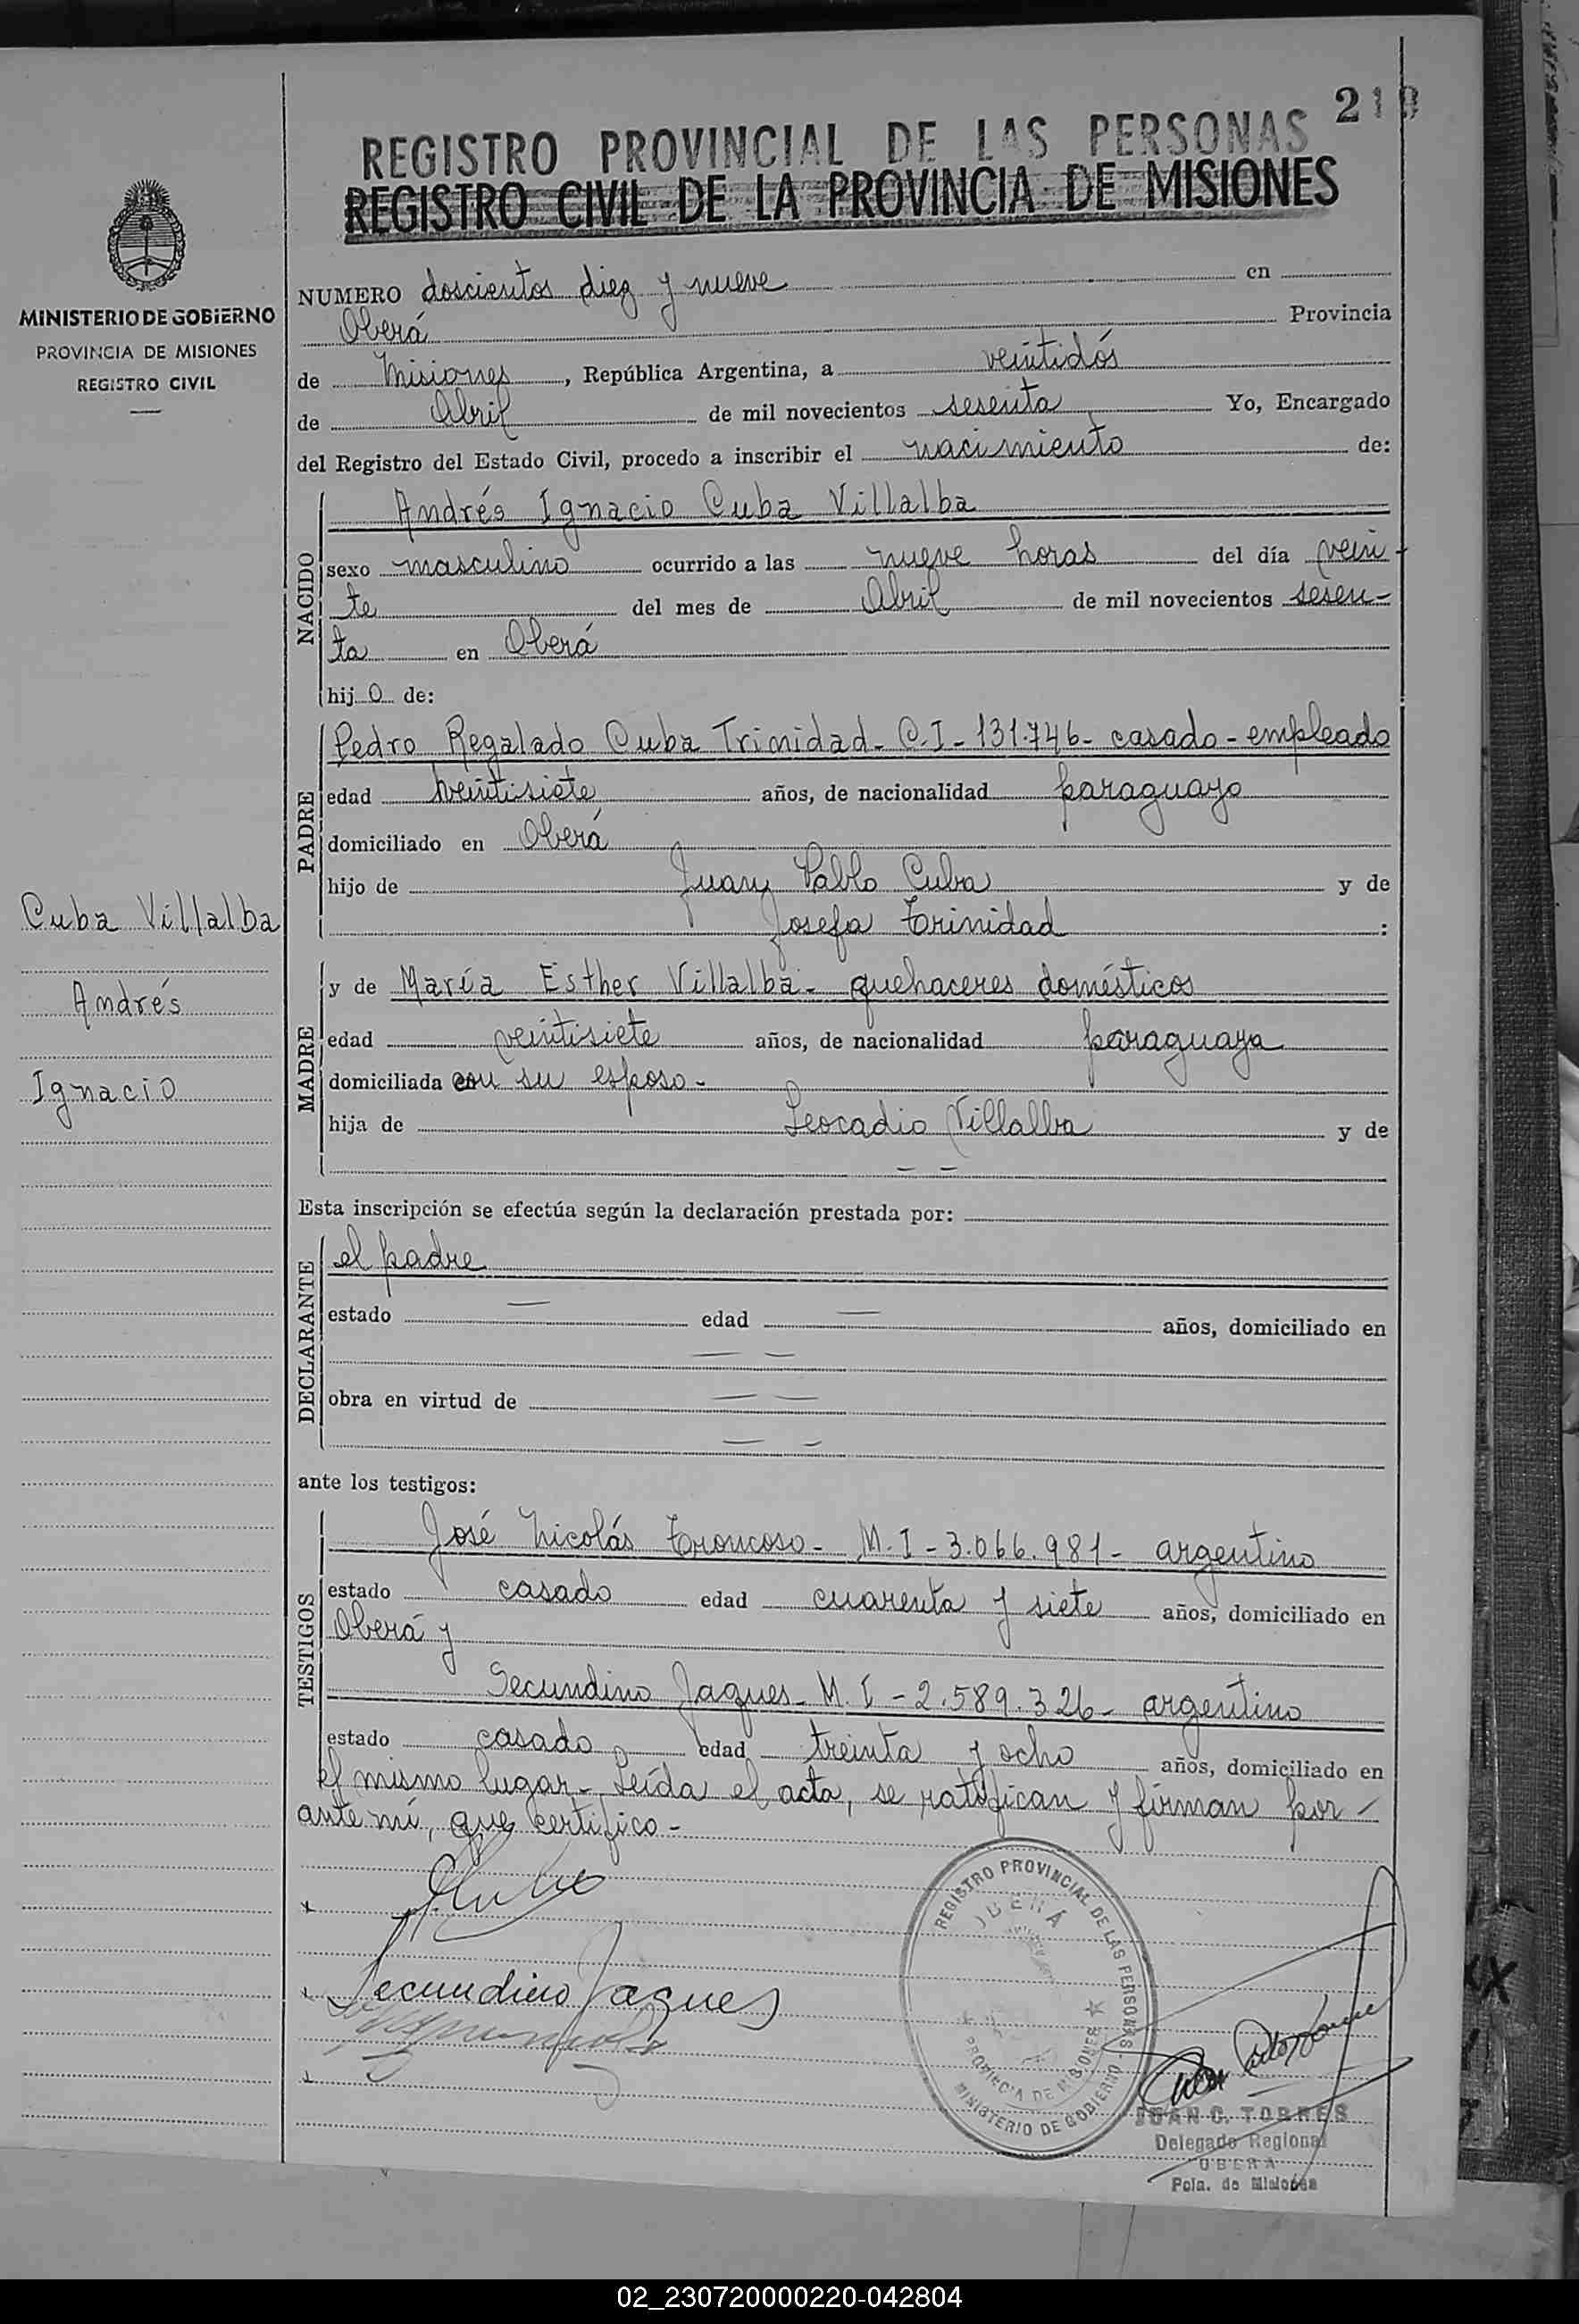 REGISTRO PROVINCIAL DE LAS PERSONAS
REGISTRO CIVIL DE LA PROVINCIA DE MISIONES
MINISTERIO DE GOBIERNO
PROVINCIA DE MISIONES
REGISTRO CIVIL
NUMERO doscientos diez y nueve en
Oberá Provincia
de Misiones, República Argentina, a veintidós
de Abril de mil novecientos sesenta Yo, Encargado
del Registro del Estado Civil, procedo a inscribir el nacimiento de:
NACIDO
Andrés Ignacio Cuba Villalba
sexo masculino ocurrido a las nueve horas del día vein
te del mes de Abril de mil novecientos sesen-
ta en Oberá
hijo de:
PADRE
Pedro Regalado Cuba Trinidad - C.I - 131.746 - casado - empleado
edad veintisiete años, de nacionalidad paraguayo
domiciliado en Oberá
hijo de Juan Pablo Cuba y de
Josefa Trinidad :
Cuba Villalba
Andrés
Ignacio
MADRE
y de María Esther Villalba - quehaceres domésticos
edad veintisiete años, de nacionalidad paraguaya
domiciliada con su esposo -
hija de Leocadio Villalba y de
— —
Esta inscripción se efectúa según la declaración prestada por:
DECLARANTE
el padre
estado — edad — años, domiciliado en
— —
obra en virtud de — —
— —
ante los testigos:
TESTIGOS
José Nicolás Troncoso - M.I - 3.066.981 - argentino
estado casado edad cuarenta y siete años, domiciliado en
Oberá y
Secundino Jaques - M.I - 2.589.326 - argentino
estado casado edad treinta y ocho años, domiciliado en
el mismo lugar - Leída el acta, se ratifican y firman por
ante mí, que certifico -
Secundino Jaques
REGISTRO PROVINCIAL DE LAS PERSONAS
OBERÁ
PROVINCIA DE MISIONES
MINISTERIO DE GOBIERNO
JUAN C. TORRES
Delegado Regional
OBERA
Pcia. de Misiones
02_230720000220-042804